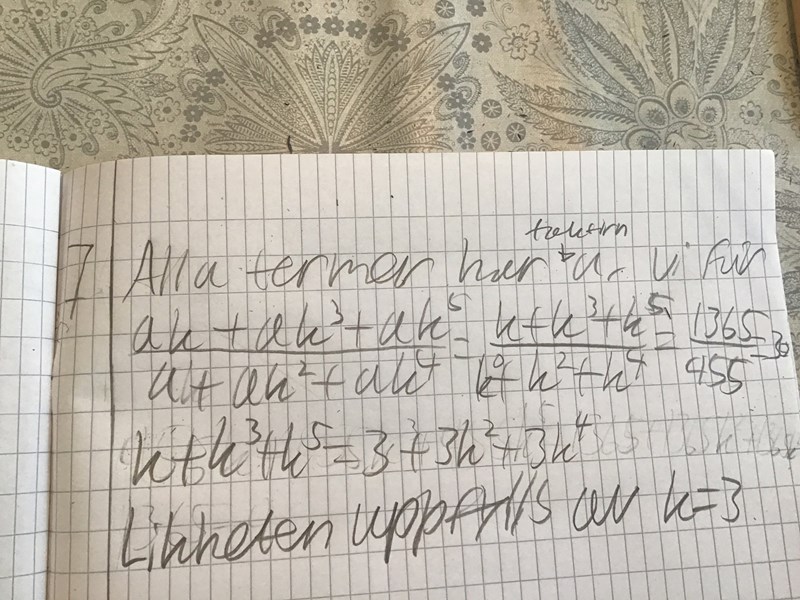 faktorn
I Alla termer har a, vi får
ak + ak³ + ak⁵ / a + ak² + ak⁴ = k + k³ + k⁵ / k⁰ + k² + k⁴ = 1365 / 455 = 3
k + k³ + k⁵ = 3 + 3k² + 3k⁴
Likheten uppfylls av k = 3